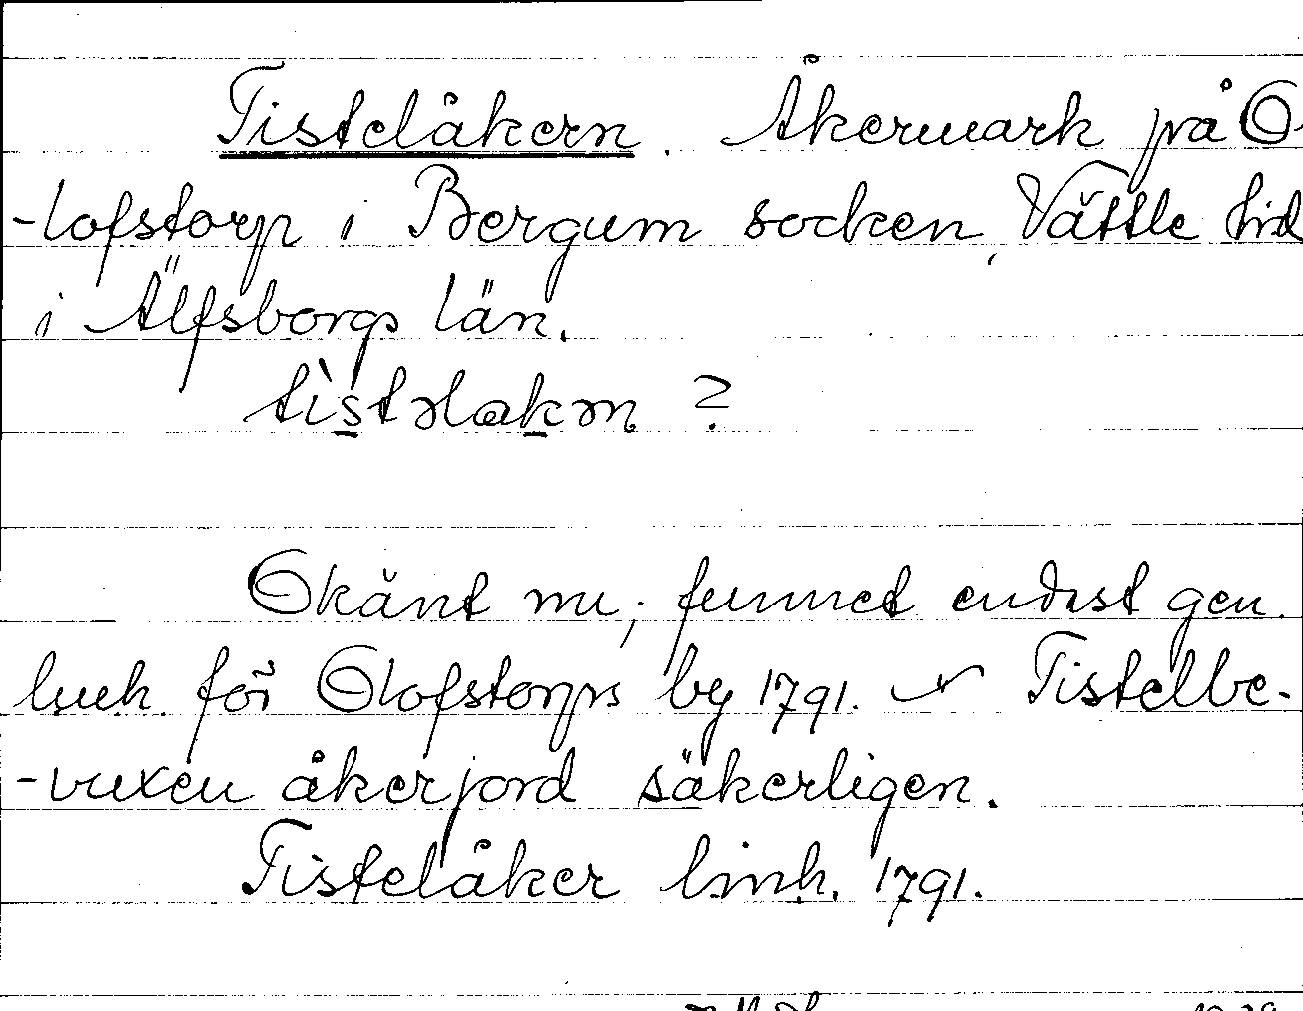 Tisteläkern. Åkermark på O-
-lofstorp i Bergum socken, Vättle hd
i Älfsborgs län.
tìstəlakən ?
Okänt nu; funnet endast gen.
lmh. för Olofstorps by 1791. Tistelbe-
-vuxen åkerjord säkerligen.
Tisteläker lmh. 1791.